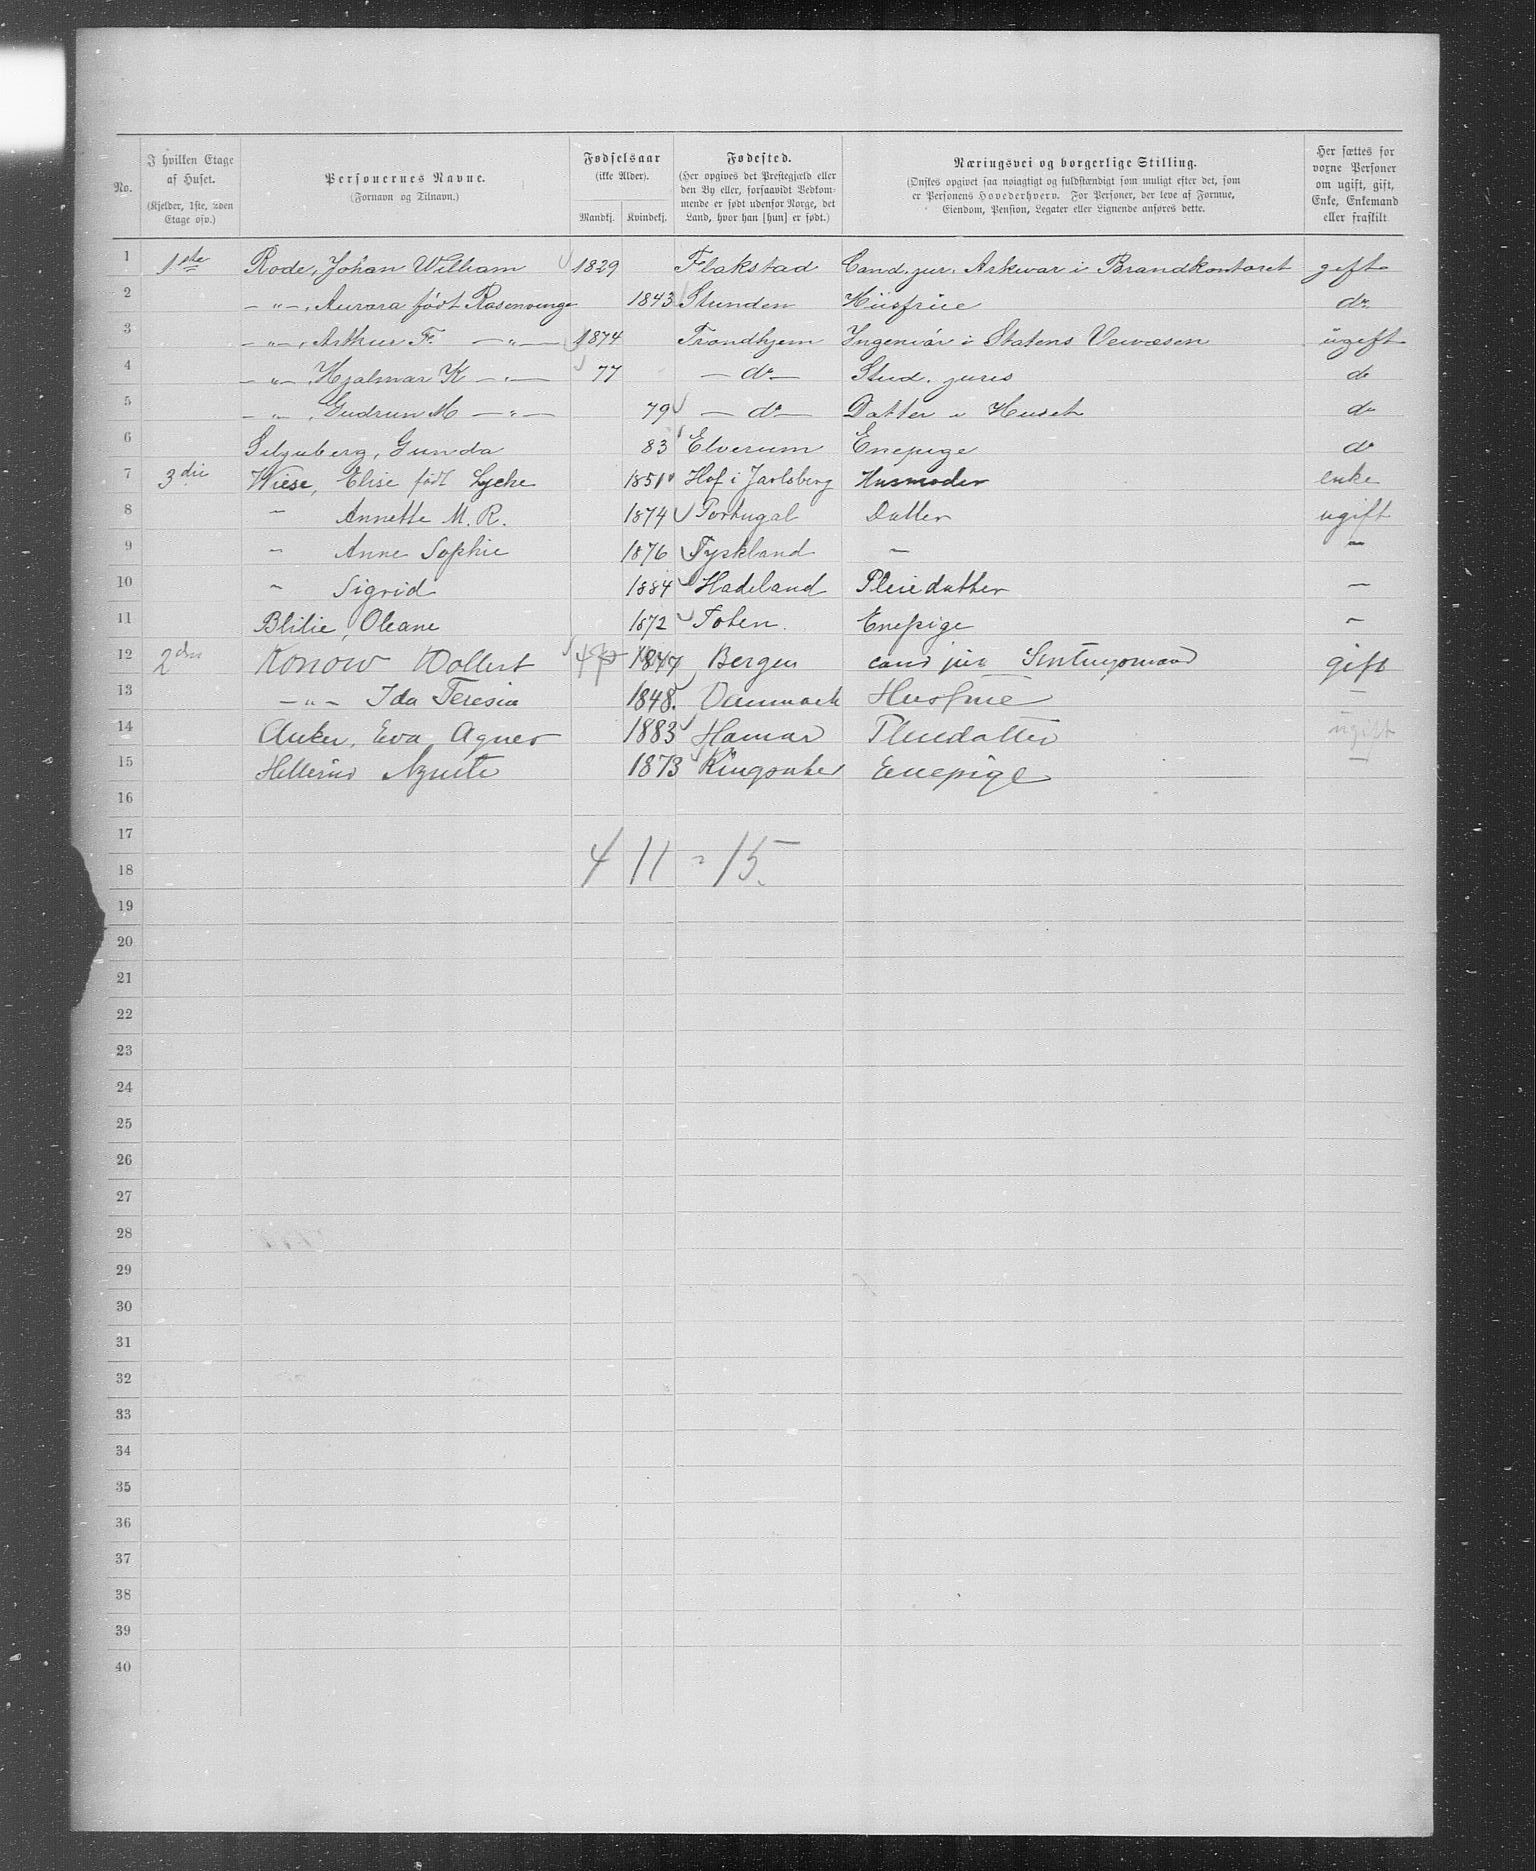 No.
I hvilken Etage af Huset. (Kjelder, 1ste, 2den Etage osv.)
Personernes Navne. (Fornavn og Tilnavn.)
Fødselsaar (ikke Alder). Mandkj. Kvindekj.
Fødested. (Her opgives det Prestegjæld eller den By eller, forsaavidt Vedkommende er født udenfor Norge, det Land, hvor han [hun] er født.)
Næringsvei og borgerlige Stilling. (Ønskes opgivet saa nøiagtigt og fuldstændigt som muligt efter det, som er Personens Hovederhverv. For Personer, der leve af Formue, Eiendom, Pension, Legater eller Lignende anføres dette.
Her sættes for voxne Personer om ugift, gift, Enke, Enkemand eller fraskilt
1 1ste Rode, Johan Wilham 1829 Flakstad Cand. jur. Arkivar i Brandkontoret gift
2 —"—, Aurora født Rosenvinge 1843 Skunden Husfrue do
3 —"—, Arthur F. —"— 1874 Trondhjem Ingeniør i Statens Veivæsen ugift
4 —"—, Hjalmar K —"— 77 — do — Stud. juris do
5 —"—, Gudrun M —"— 79 — do — Datter i Huset do
6 Gunda 83 Elverum Enepige do
7 3die Wiese, Elise født Lyche 1851 Hof i Jarlsberg Husmoder enke
8 " Annette M. R. 1874 Portugal Datter ugift
9 " Anne Sophie 1876 Tyskland — —
10 " Sigrid 1884 Hadeland Pleiedatter —
11 Blilie, Oleane 1872 Toten. Enepige —
12 2den Konow Wollert 47 1847 Bergen cand jur gift
13 —"— Ida Teresia 1848. Danmark Husfrue —
14 Anker, Eva Agnes 1883 Hamar Pleiedatter ugift
15 Agnete 1873 Ringsaker Enepige —
16
17
4 11 = 15.
18
19
20
21
22
23
24
25
26
27
28
29
30
31
32
33
34
35
36
37
38
39
40